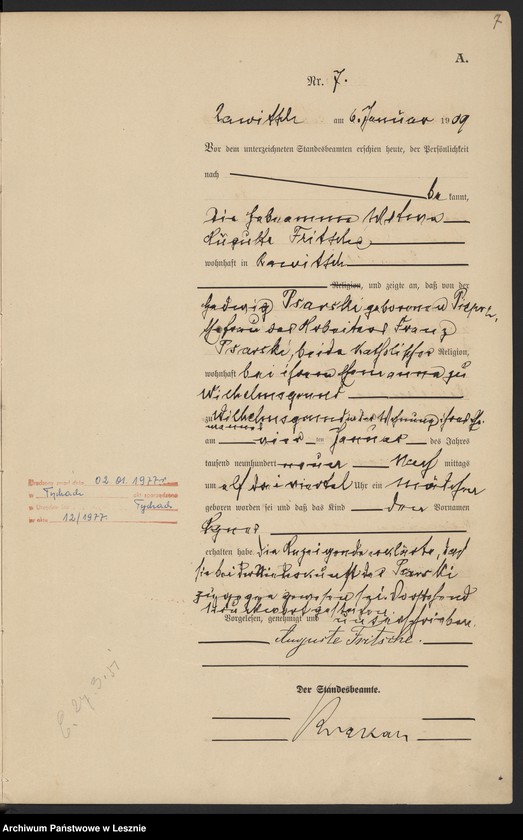 7
A.
Nr. 7.
Rawitsch am 6. Januar 1909
Vor dem unterzeichneten Standesbeamten erschien heute, der Persönlichkeit
nach
be kannt,
die Hebamme Witwe
Auguste Fritsche
wohnhaft in Rawitsch
Religion, und zeigte an, daß von der
Hedwig Psarski geborenen
Ehefrau des Arbeiters Franz
Psarski, beide katholischer Religion,
wohnhaft bei ihrem Ehemanne zu
Wilhelmsgrund
zu Wilhelmsgrund in der Wohnung ihres Ehe-
mannes
am vier ten Januar des Jahres
tausend neunhundert neun Nach mittags
um elf dreiviertel Uhr ein Mädchen
geboren worden sei und daß das Kind den Vornamen
Agnes
erhalten habe. Die Anzeigende erklärte, daß
sie bei der Niederkunft der Psarski
zugegen gewesen sei. Vorstehend
1 Druckwort gestrichen.
Vorgelesen, genehmigt und unterschrieben.
Auguste Fritsche.
Der Standesbeamte.
02.01.1977r.
w Tychach
Tychach
12/1977.
Archiwum Państwowe w Lesznie